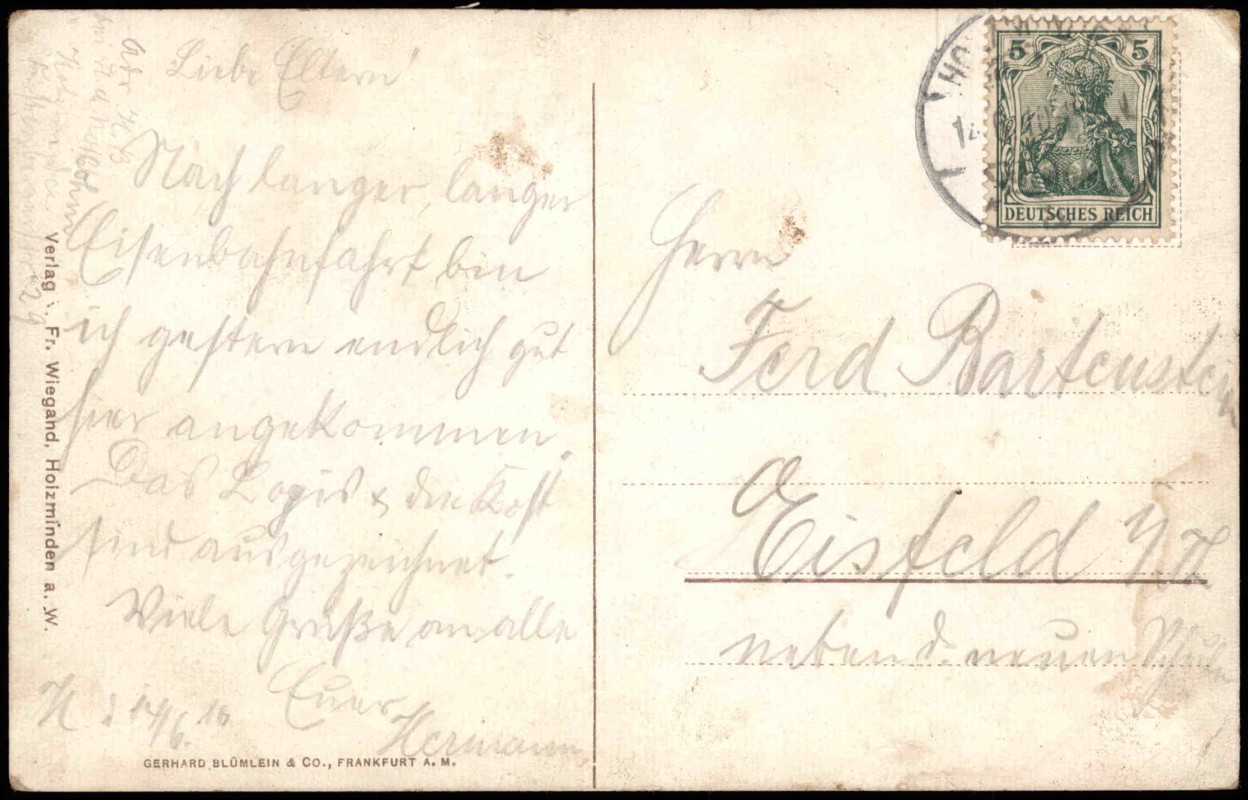 Liebe Eltern!
Nach langer, langer
Eisenbahnfahrt bin
ich gestern endlich gut
hier angekommen.
Das Logis & die Kost
sind ausgezeichnet.
Viele Grüße an alle
Euer
Hermann
H d 14/6.
Adr H. B
bei
Holzminden
29
Verlag v. Fr. Wiegand, Holzminden a. W.
GERHARD BLÜMLEIN & CO., FRANKFURT A. M.
5 5
DEUTSCHES REICH
HO
14
Herrn
Ferd Bartenstein
Eisfeld
neben d. neuen Schule